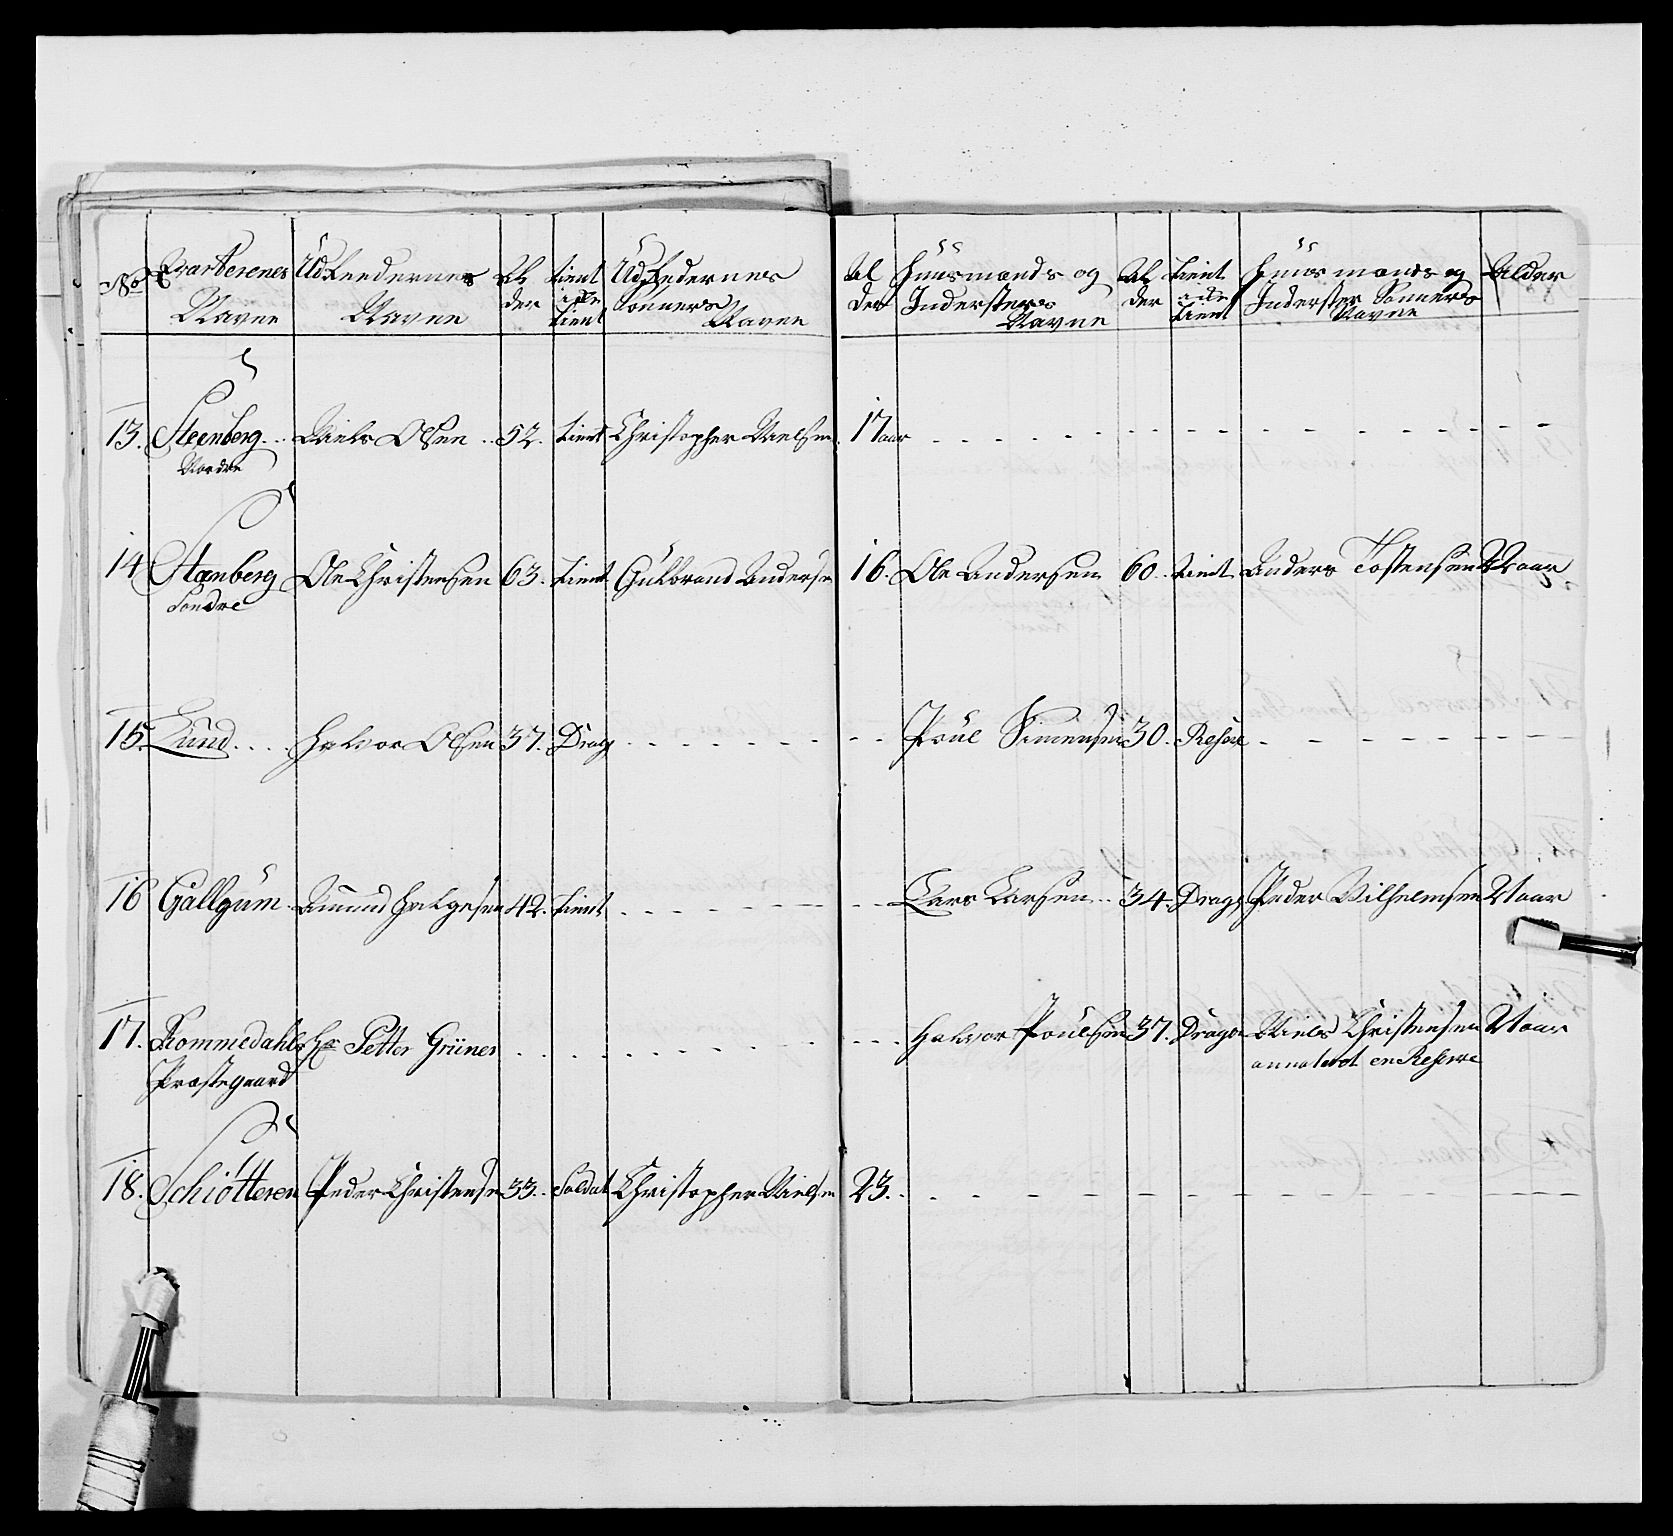 No
Qvarterenes Navne
Udreedernes Navne
Al der
tient eller ikke tient
Udreedernes Sönners Navne
Al der
Huusmænds og Indersters Navne
Al der
tient
Huusmænds og Inderster Sönners Navne
Alder
13. Steenberg Nordre Niels Olsen 52. tient Christopher Nielsen 17 aar
14 Stenberg Söndre Ole Christensen 63. tient Gulbrand Anderse 16. Ole Andersen 60. tient Anders Tostensen aar
15. Lund Halvor Olsen 37. Drag Poul Simensen 30. Reserve
16 Gallgum Amund Helgesen 42. tient Lars Larsen 34. Drag Peder Vilhelmsen aar
17. Kommedahls Præstegaard Hr Petter Grüner Halvor Poulsen 37. Dragon Niels Christensen aar
annoteret en Reserve
18. Schiötteren Peder Christense 33. Soldat Christopher Nielsen 23.